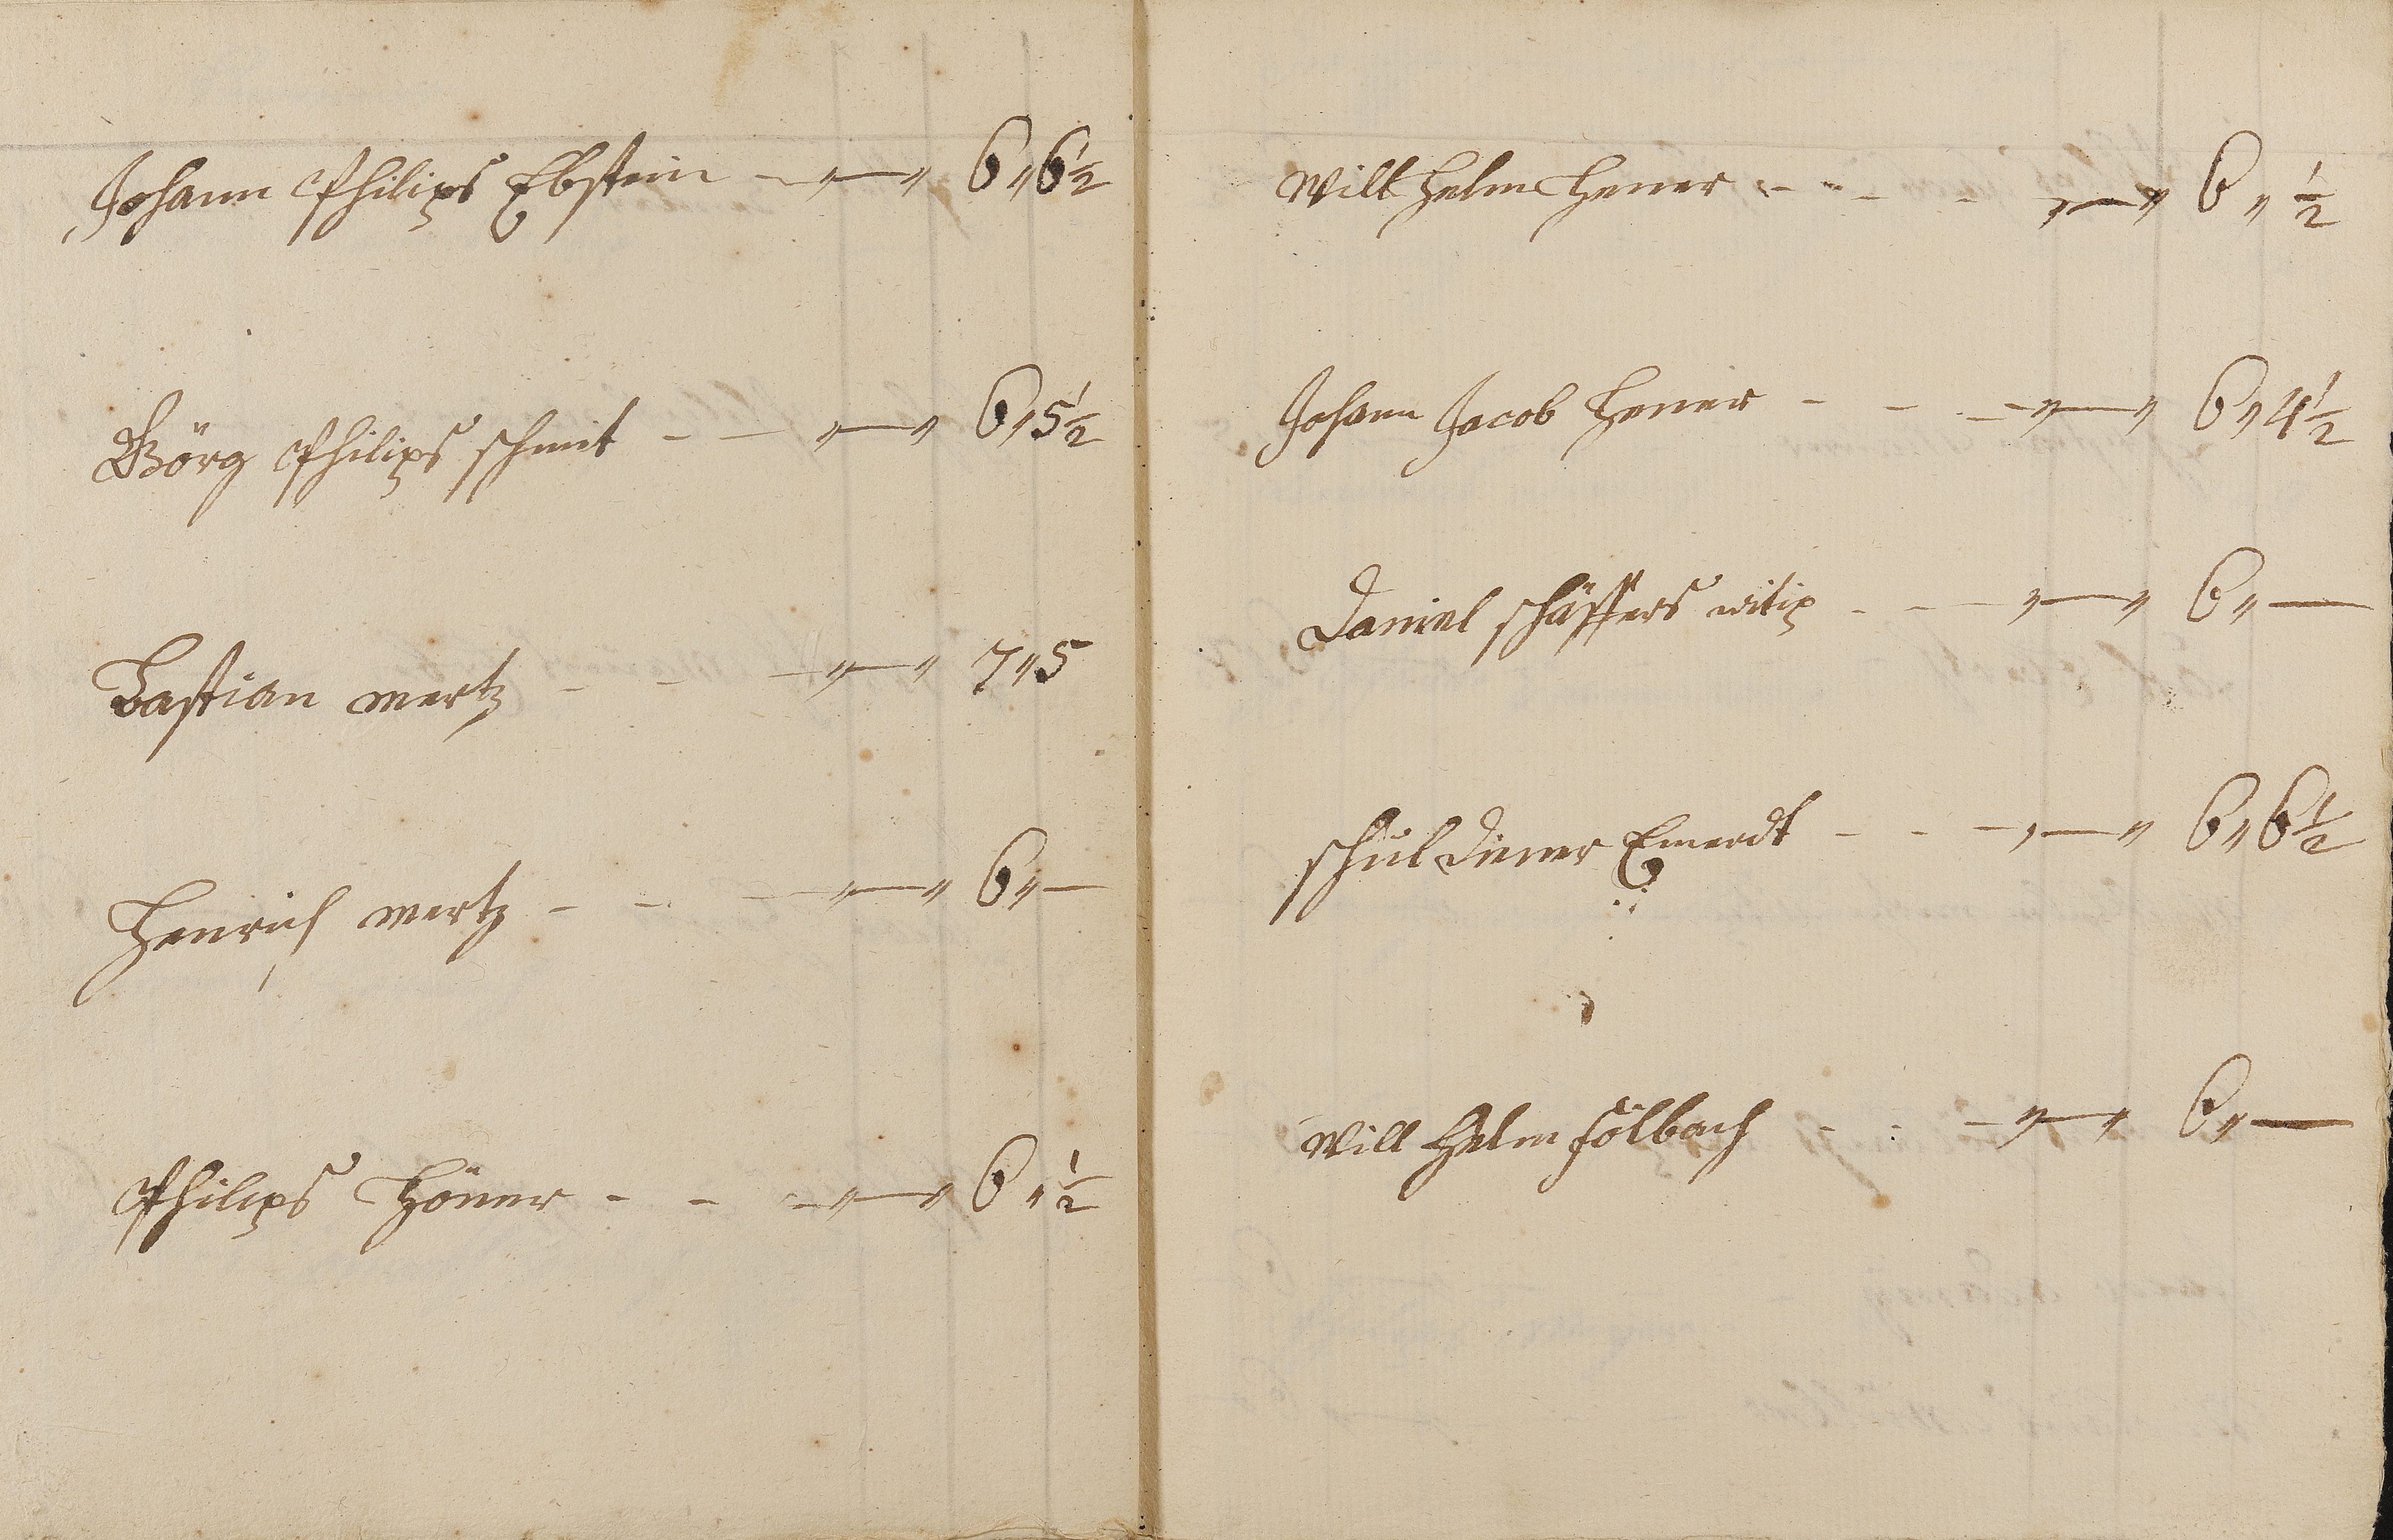 Johann Philips Ebstein - - „ — „ 6 „ 6 ½
Görg Philips schmit - - „ — „ 6 „ 5 ½
Bastian wertz - - - „ — „ 7 „ 5
Henrich wertz - - - „ — „ 6 „ —
Philips Höner - - - „ — „ 6 „ ½
Willhelm Hener - - - - „ — „ 6 „ ½
Johann Jacob Hener - - - „ — „ 6 „ 4 ½
Daniel schäffers witip - - „ — „ 6 „ —
schul diener Emerdt - - - „ — „ 6 „ 6 ½
Will Helm fölbach - - - „ — „ 6 „ —